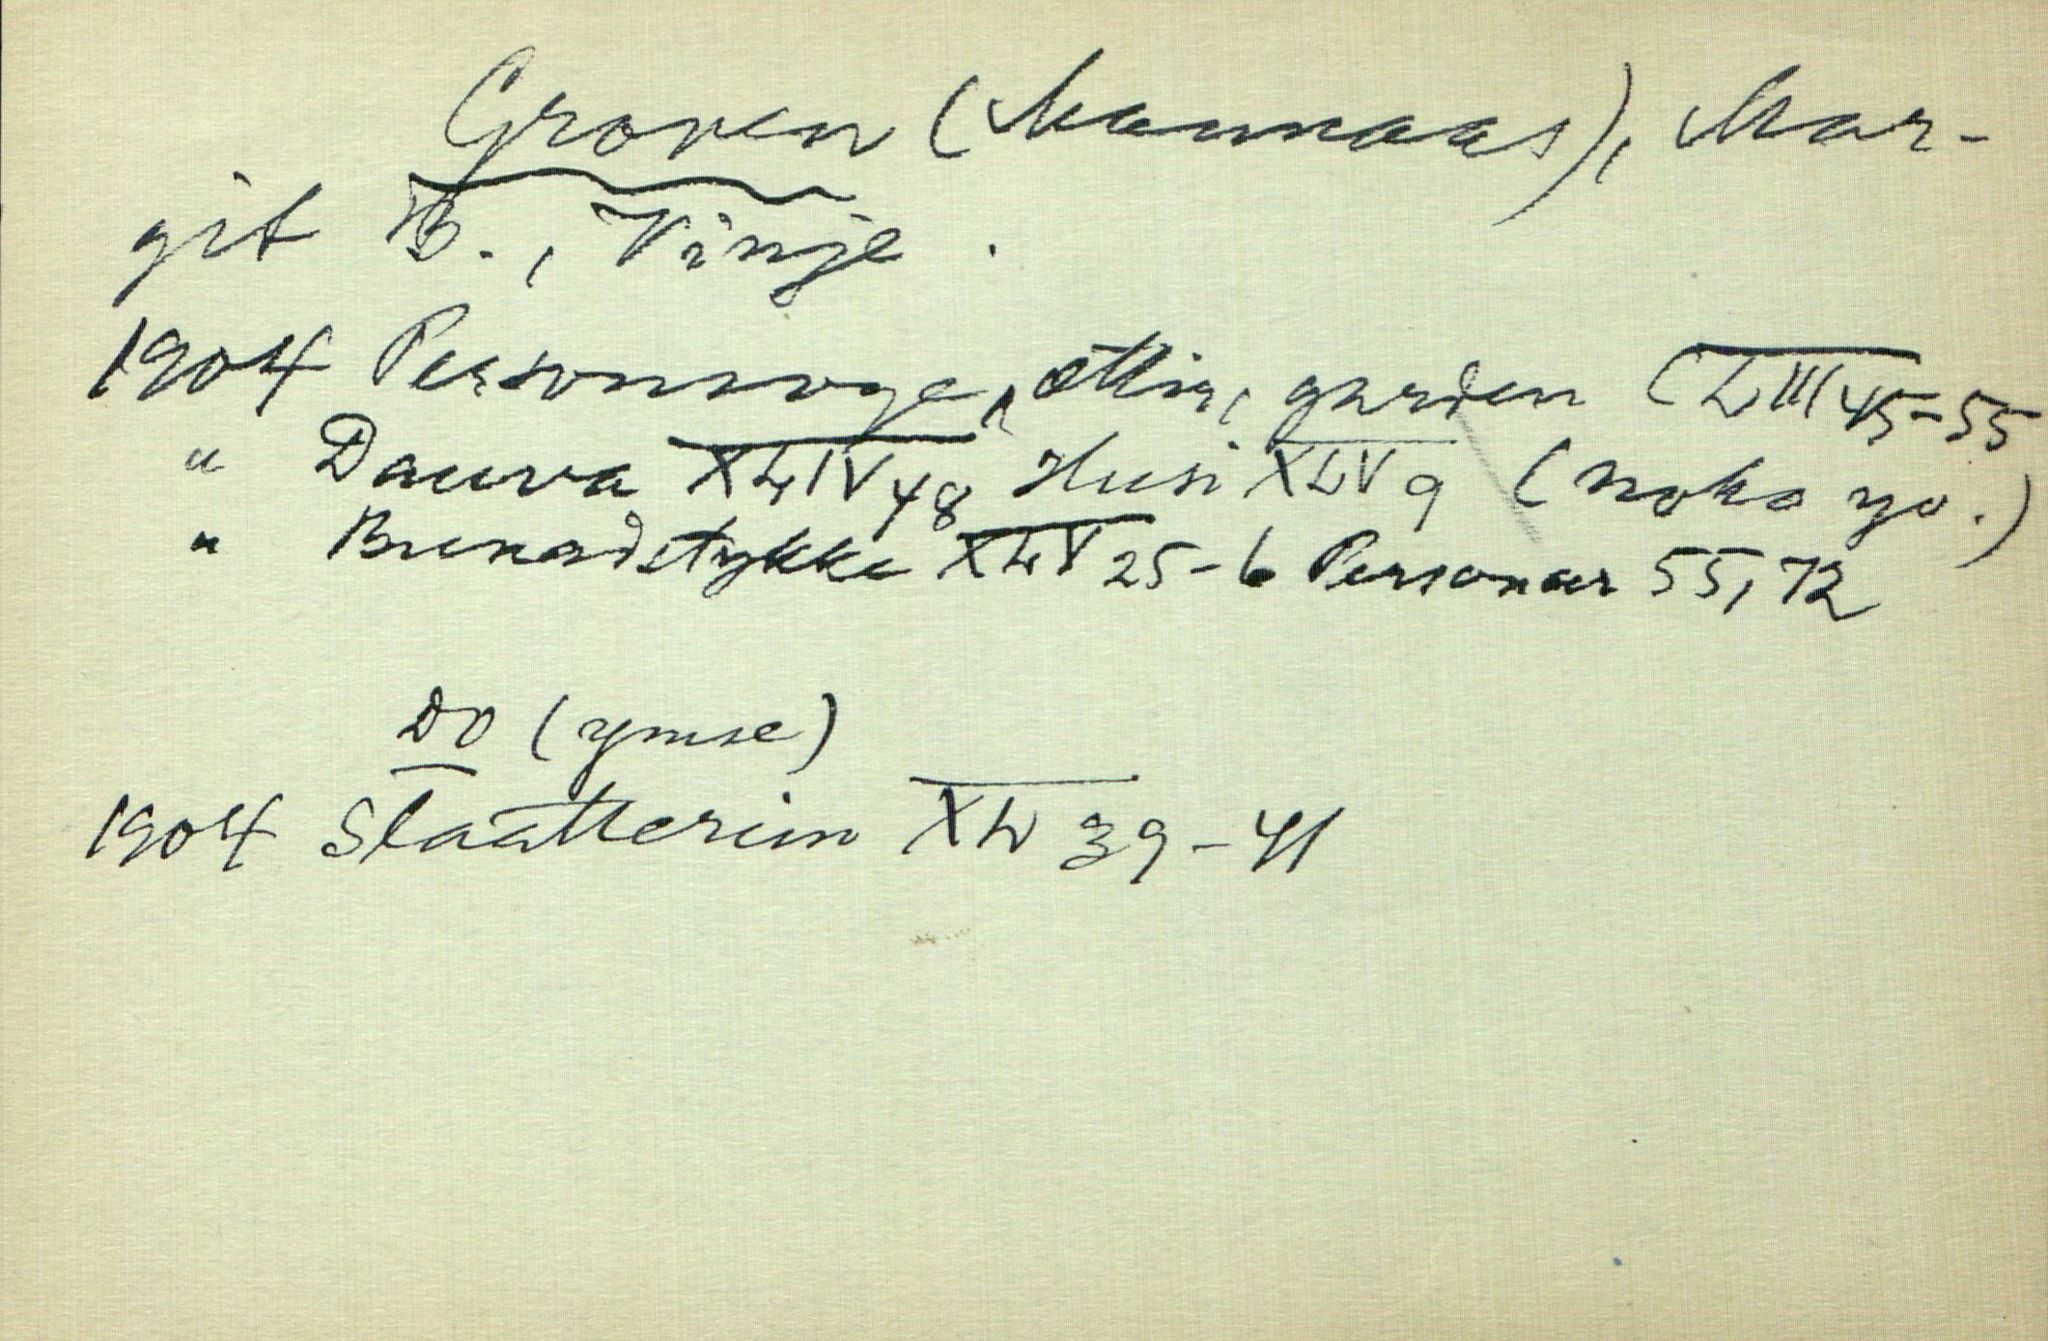 Groven (Mannaas), Mar-
git B., Vinje.
1904 Personsoge, ættir, garden (XLIII 45-55
" Dauva XLIV 48 Husi XLV 9 (noko yo.)
" Bunadstykke XLV 25-6 Personar 55, 72
DO (ymse)
1904 Slaatterim XL 39-41